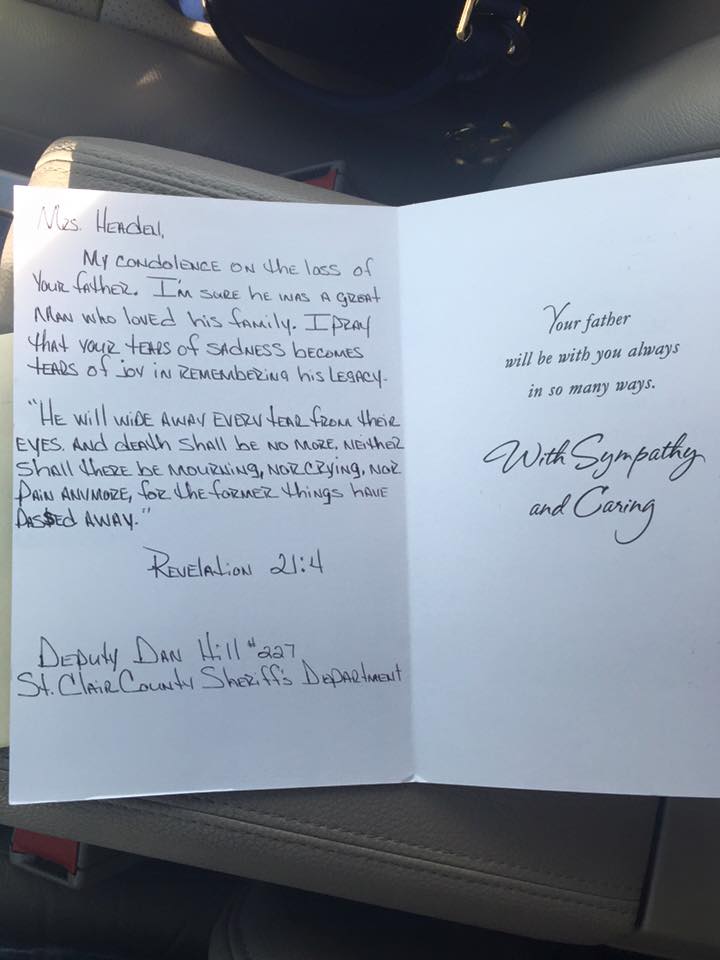 Mrs. Headen,
My condolence on the loss of
your father. I'm sure he was a great
man who loved his family. I pray
that your tears of sadness becomes
tears of joy in remembering his legacy.
"He will wipe away every tear from their
eyes. And death shall be no more, neither
shall there be mourning, nor crying, nor
pain anymore, for the former things have
passed away."
Revelation 21:4
Deputy Dan Hill #227
St. Clair County Sheriff's Department
Your father
will be with you always
in so many ways.
With Sympathy
and Caring